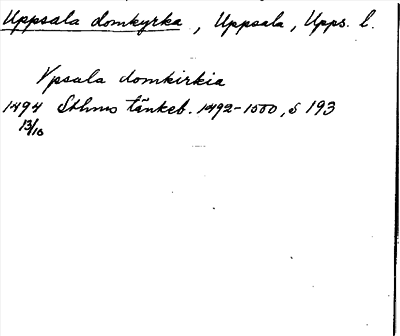 Uppsala domkyrka, Uppsala, Upps. l.
Vpsala domkirkia
1494 Sthms tänkeb. 1492-1500, s 193
13/10